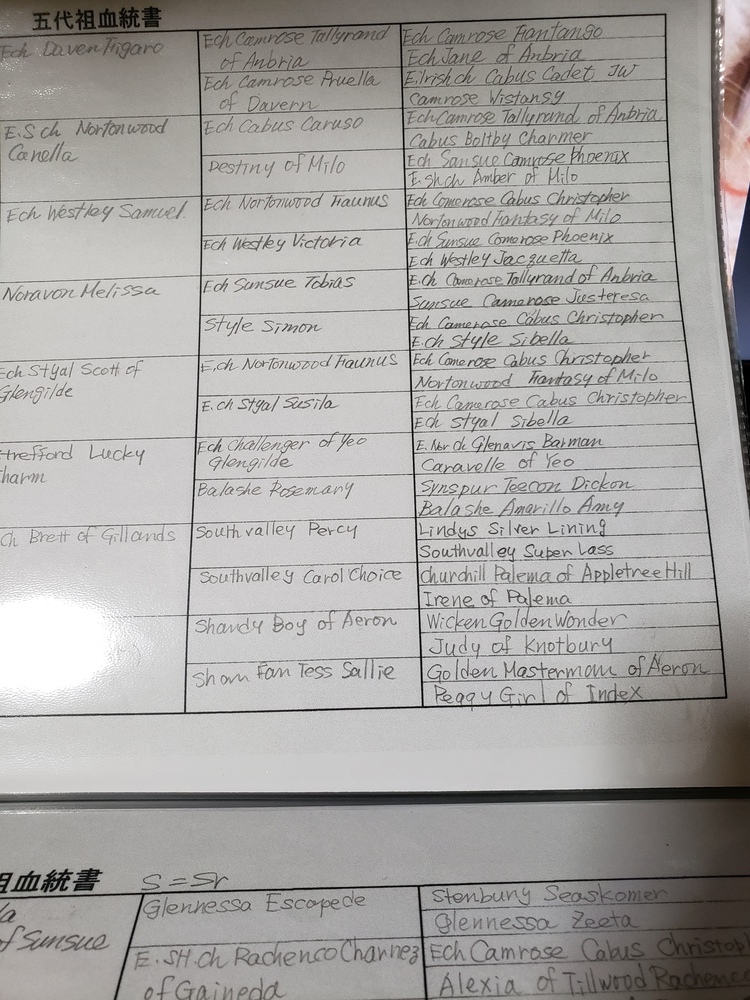 五代祖血統書
Ech Daven Figaro
E.S ch Nortonwood
Canella
Ech Westley Samuel.
Noravon Melissa
Ech Styal Scott of
Glengilde
trefford Lucky
harm
Ch Brett of Gillands
Ech Camrose Tallyrand
of Anbria
Ech Camrose Pruella
of Davern
Ech Cabus Caruso
Destiny of Milo
Ech Nortonwood Faunus
Ech Westley Victoria
Ech Sunsue Tobias
Style Simon
E.ch Nortonwood Faunus
E.ch Styal Susila
Ech Challenger of Yeo
Glengilde
Balashe Rosemary
South valley Percy
Southvalley Carol Choice
Shandy Boy of Aeron
Sham Fan Tess Sallie
Ech Camrose Fantango
Ech Jane of Anbria
E.Irish ch Cabus Cadet JW
Camrose Wistansy
Ech Camrose Tallyrand of Anbria
Cabus Boltby Charmer
Ech Sansue Camrose Phoenix
E.Sh ch Amber of Milo
Ech Comerose Cabus Christopher
Nortonwood Fantasy of Milo
E.ch Sunsue Comerose Phoenix
Ech Westley Jacquetta
E.ch Comerose Tallyrand of Anbria
Sunsue Camerose Justeresa
Ech Camerose Cabus Christopher
E.ch Style Sibella
Ech Comerose Cabus Christopher
Nortonwood Fantasy of Milo
Ech Camerose Cabus Christopher
Ech Styal Sibella
E. Nor ch Glenavis Barman
Caravelle of Yeo
Synspur Teecon Dickon
Balashe Amarillo Amy
Lindys Silver Lining
Southvalley Super Lass
Churchill Palema of Appletree Hill
Irene of Palema
Wicken Golden Wonder
Judy of Knotbury
Golden Mastermom of Aeron
Peggy Girl of Index
祖血統書 S=Sr
of Sunsue
Glennessa Escapede
E.SH.ch Rachenco Charnez
of Gaineda
Stenbury Seaskomer
Glennessa Zeeta
Ech Camrose Cabus Christoph
Alexia of Tillwood Rachenco